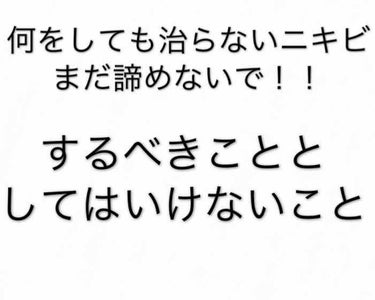 何をしても治らないニキビ
まだ諦めないで！！
するべきことと
してはいけないこと